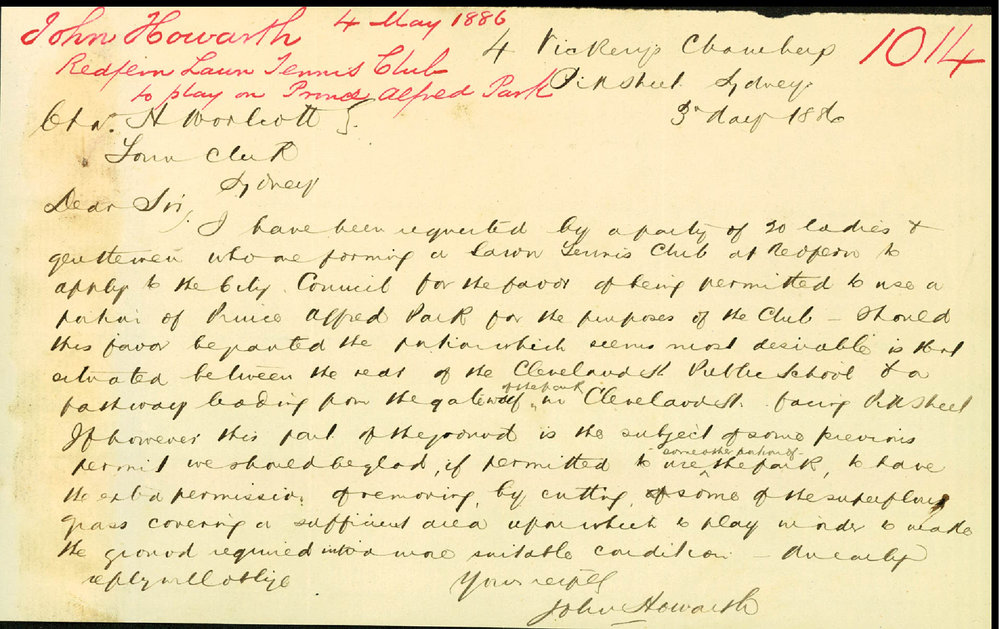 John Howarth 4 May 1886
Redfern Lawn Tennis Club
to play on Prince Alfred Park
1014
4 Vickery's Chambers
Pitt Street Sydney
3rd May 1886
Chas. H Woolcott
Town Clerk
Sydney
Dear Sir,
I have been requested by a party of 20 ladies &
gentlemen who are forming a Lawn Tennis Club at Redfern to
apply to the City Council for the favor of being permitted to use a
portion of Prince Alfred Park for the purposes of the Club – Should
this favor be granted the portion which seems most desirable is that
situated between the rear of the Cleveland St Public School & a
pathway leading from the gateway of the park in Cleveland St. facing Pitt Street
If however this part of the ground is the subject of some previous
permit we should be glad, if permitted to use some other portion of the park, to have
the extra permission of removing, by cutting, some of the superfluous
grass covering a sufficient area upon which to play in order to make
the ground required into a more suitable condition – An early
reply will oblige
Yours respfly
John Howarth